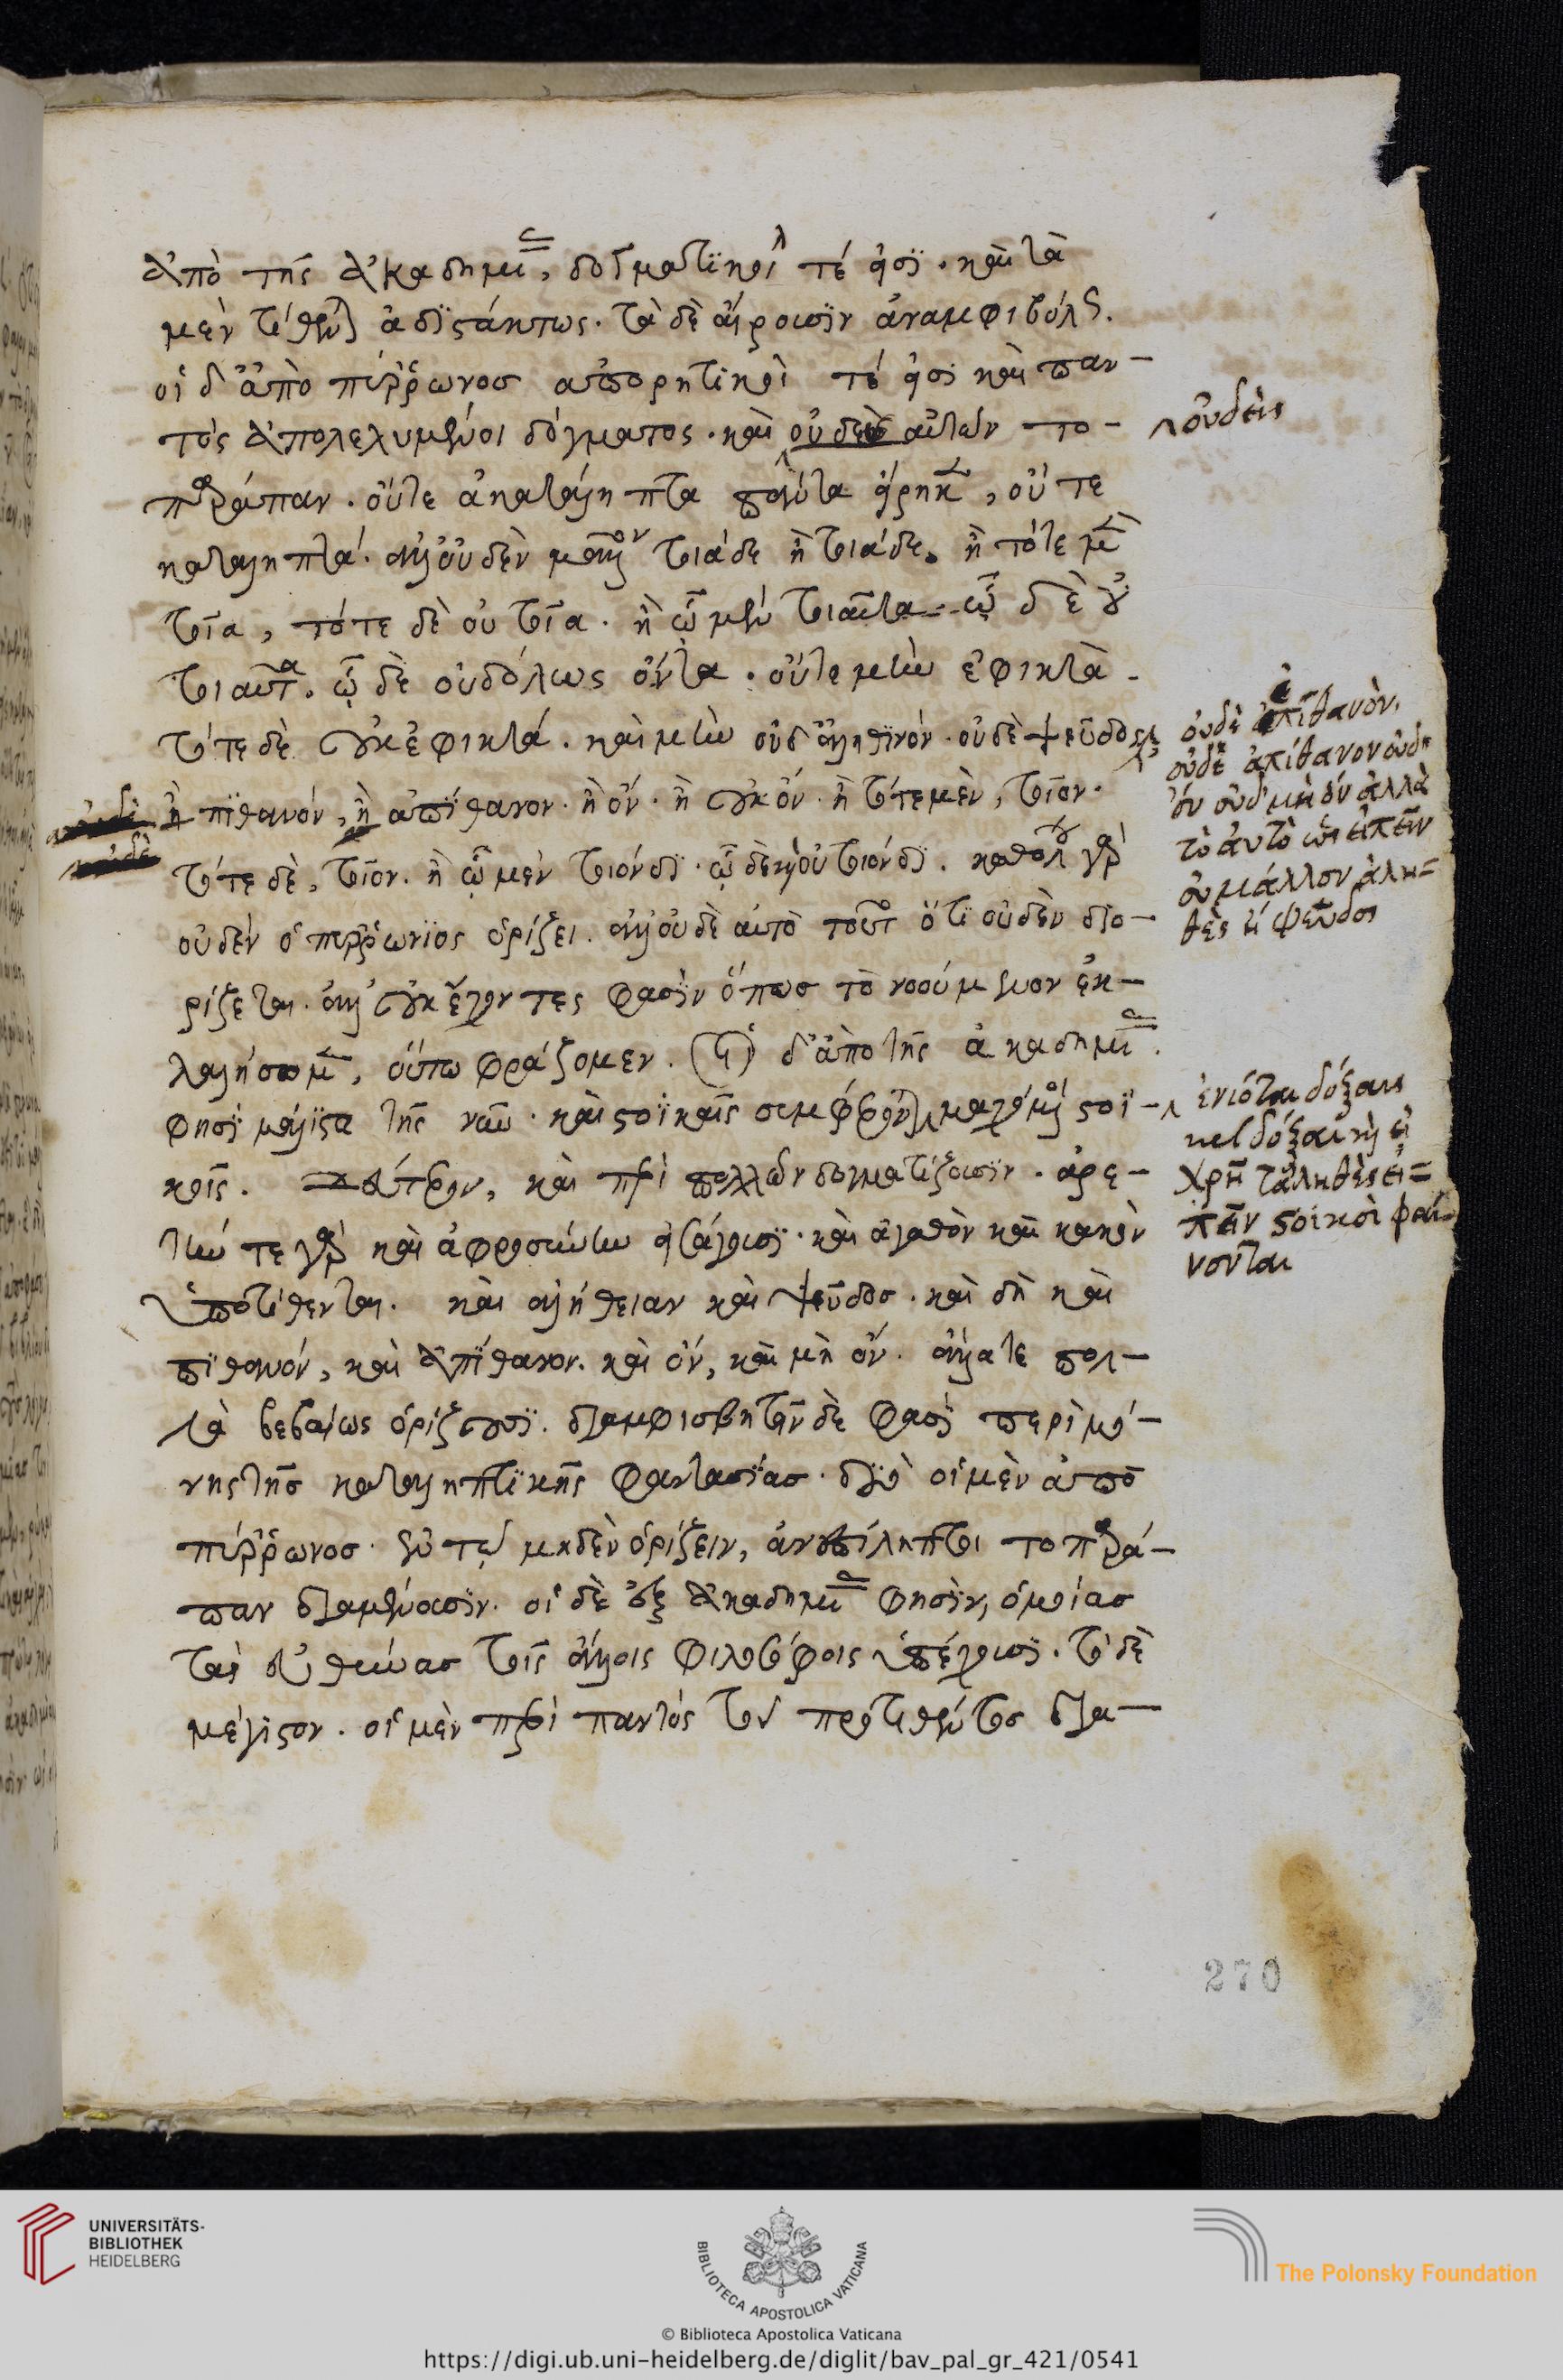 ἀπὸ τῆς ἀκαδημίας, δογματικοί τέ εἰσι· καὶ τὰ
μὲν τίθενται ἀδιστάκτως· τὰ δὲ αἴρουσιν ἀναμφιβόλως.
οἱ δ' ἀπὸ πύρρωνος ἀπορητικοὶ τέ εἰσι καὶ παν-
τὸς ἀπολελυμένοι δόγματος· καὶ οὐδεὶς αὐτῶν το-
παράπαν· οὔτε ἀκατάληπτα πάντα εἴρηκεν, οὔτε
καταληπτά· ἀλλ' οὐδὲν μᾶλλον τοιάδε ἢ τοιάδε. ἢ τότε μὲν
τοῖα, τότε δὲ οὐ τοῖα· ἢ ᾧ μὲν τοιαῦτα· ᾧ δὲ οὐ
τοιαῦτα. ᾧ δὲ οὐδόλως ὄντα· οὔτε μὴν ἐφικτὰ-
τότε δὲ οὐκ ἐφικτά· καὶ μὴν οὐδ' ἀληθινόν· οὐδὲ ψεῦδος
ἢ πιθανόν, ἢ ἀπίθανον· ἢ ὄν· ἢ οὐκ ὄν· ἢ τότε μὲν, τοῖον·
τότε δὲ, τοῖον· ἢ ᾧ μὲν τοιόνδι· ᾧ δὲ καὶ οὐ τοιόνδι· καθόλου γὰρ
οὐδὲν ὁ πυρρώνιος ὁρίζει· ἀλλ' οὐδὲ αὐτὸ τοῦτο ὅτι οὐδὲν διο-
ρίζεται· ἀλλ' οὐκ ἔχοντες φασὶν ὅπως τὸ νοούμενον ἐκ-
λαλήσωμεν, οὕτω φράζομεν. οἱ δ' ἀπὸ τῆς ἀκαδημίας·
φησὶ μάλιστα τῆς νῦν· καὶ στοϊκαῖς συμφέρονται μαχόμενοι στοϊ-
κοῖς. δεύτερον, καὶ περὶ πολλῶν δογματίζουσιν· ἀρε-
τήν τε γὰρ καὶ ἀφροσύνην εἰσάγουσι· καὶ ἀγαθὸν καὶ κακὸν
ὑποτίθενται. καὶ ἀλήθειαν καὶ ψεῦδος· καὶ δὴ καὶ
πιθανόν, καὶ ἀπίθανον· καὶ ὄν, καὶ μὴ ὄν· ἄλλα τε πολ-
λὰ βεβαίως ὁρίζουσι. διαμφισβητεῖν δὲ φασὶ περὶ μό-
νης τῆς καταληπτικῆς φαντασίας· διὸ οἱ μὲν ἀπὸ
πύρρωνος ἐν τῷ μηδὲν ὁρίζειν, ἀνεπίληπτοι το παρά-
παν διαμένουσιν. οἱ δὲ ἐξ ἀκαδημίας φησὶν, ὁμοίας
τὰς εὐθύνας τοῖς ἄλλοις φιλοσόφοις ὑπέχουσι. τὸ δὲ
μέγιστον· οἱ μὲν περὶ παντὸς τοῦ προτεθέντος δια-
οὐδεὶς
οὐδὲ πιθανὸν,
οὐδὲ ἀπίθανον οὐδ'
ὄν οὐδ' μὴ ὄν ἀλλὰ
τὸ αὐτὸ ὡς εἰπεῖν
οὐ μάλλον ἀλη=
θὲς ἢ ψεῦδος
ἐνίοτε δόξαις
καὶ εἰ
χρὴ τἀληθὲς εἰ=
πεῖν στοϊκοὶ φαί-
νονται
270
UNIVERSITÄTS-
BIBLIOTHEK
HEIDELBERG
BIBLIOTECA APOSTOLICA VATICANA
The Polonsky Foundation
© Biblioteca Apostolica Vaticana
https://digi.ub.uni-heidelberg.de/diglit/bav_pal_gr_421/0541